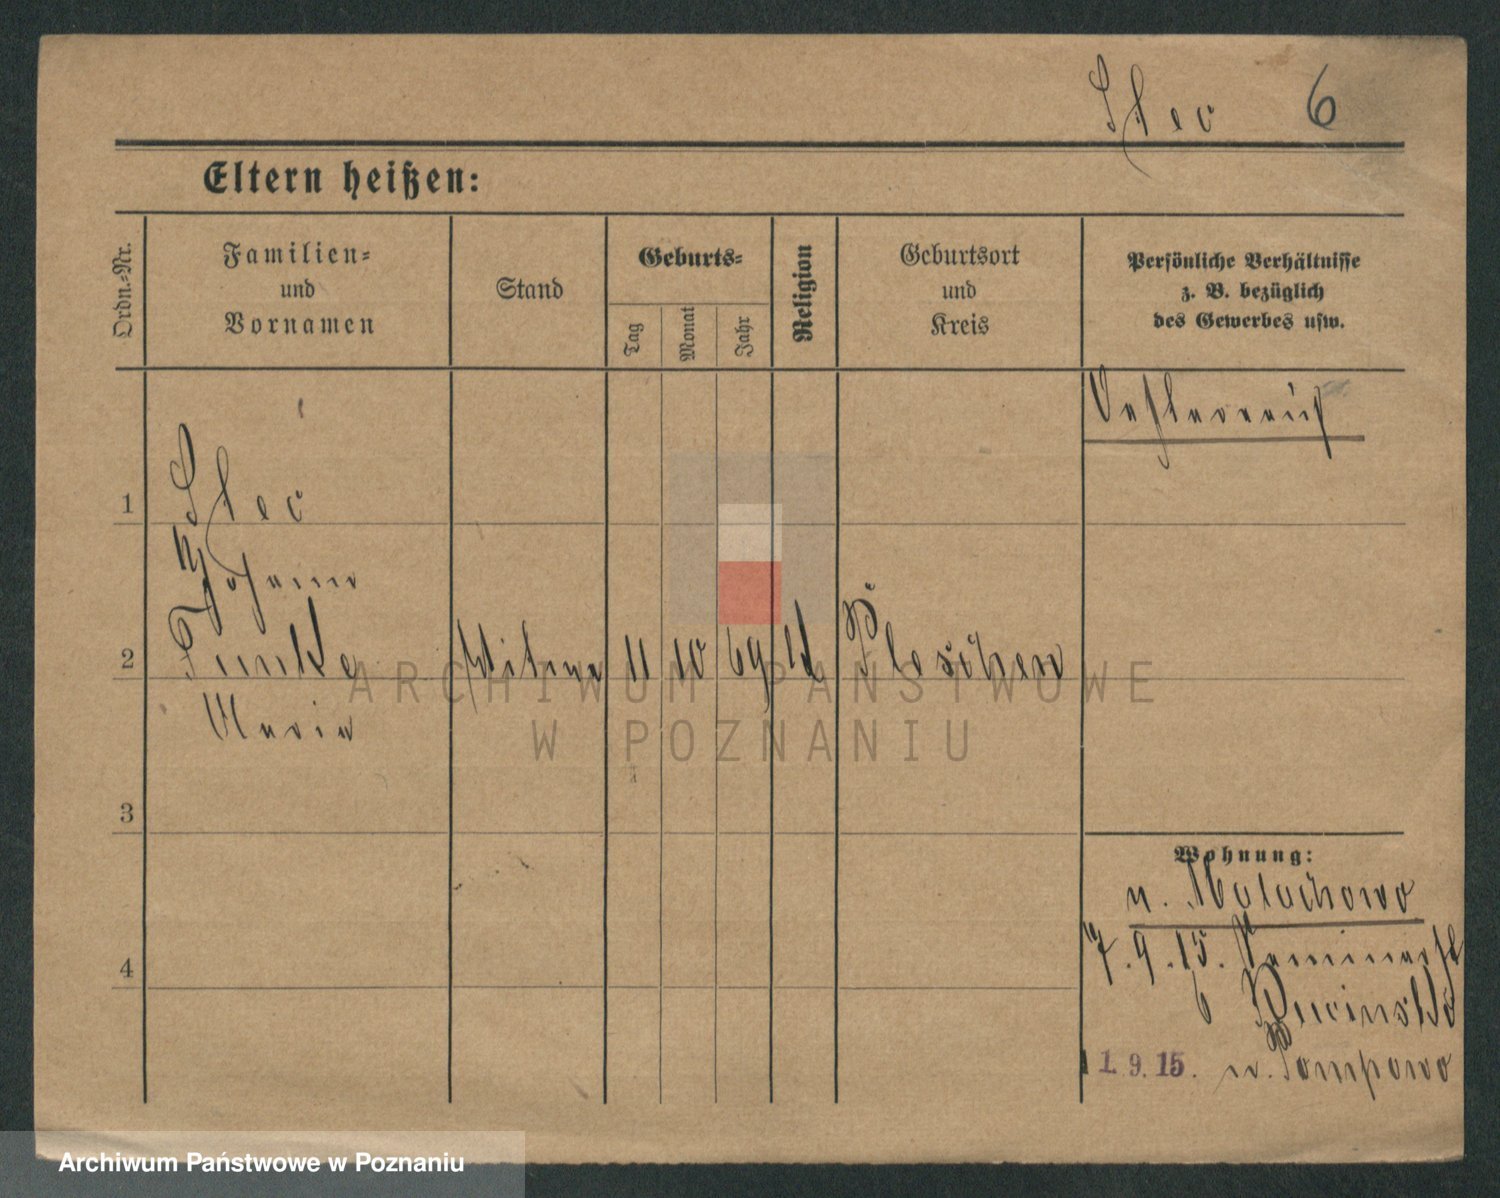 Stec 6
Eltern heißen:
Ordn.-Nr.
Familien-
und
Vornamen
Stand
Geburts-
Tag
Monat
Jahr
Religion
Geburtsort
und
Kreis
Persönliche Verhältnisse
z. B. bezüglich
des Gewerbes usw.
Oesterreich
1
Stec
Johann
2
Maria
Witwe
11
10
69
Pleschen
3
4
Wohnung:
n. Malachowo
7. 9. 15.
6
1. 9. 15.
n.
ARCHIWUM PAŃSTWOWE
W POZNANIU
Archiwum Państwowe w Poznaniu